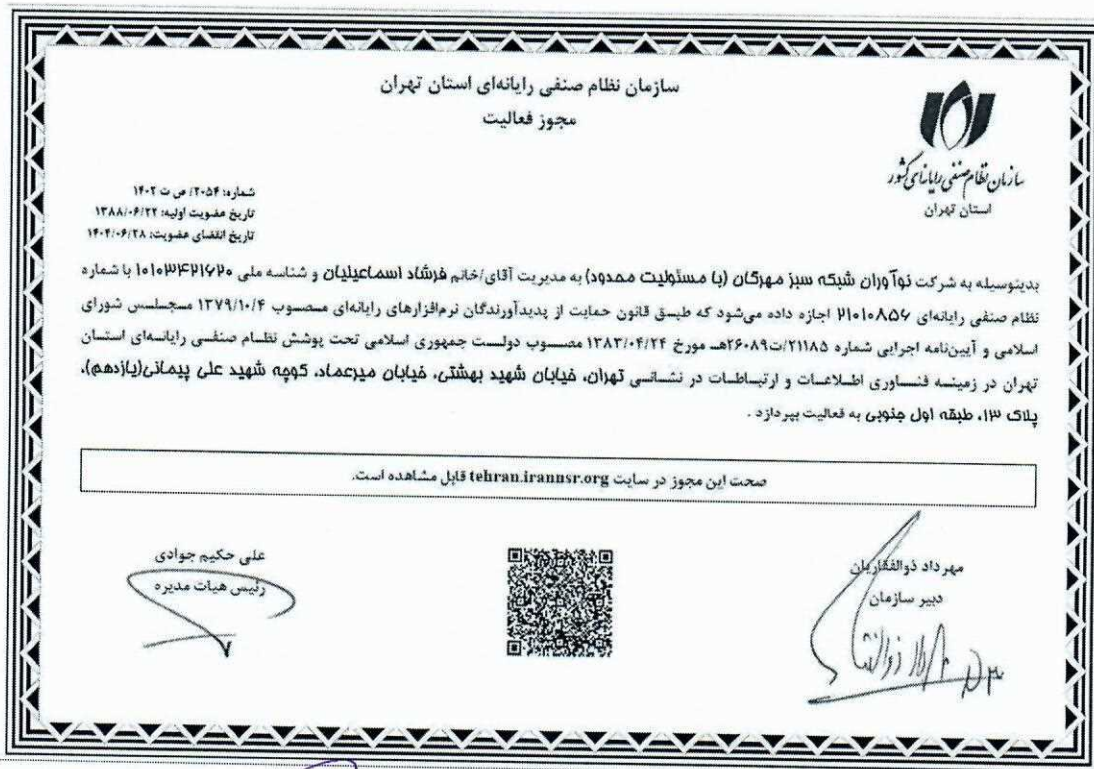 سازمان نظام صنفی رایانه‌ای استان تهران
مجوز فعالیت
سازمان نظام صنفی رایانه‌ای کشور
استان تهران
شماره: ۲۰۵۴/ ص ت ۱۴۰۲
تاریخ عضویت اولیه: ۱۳۸۸/۰۶/۲۲
تاریخ انقضای عضویت: ۱۴۰۴/۰۶/۲۸
بدینوسیله به شرکت نوآوران شبکه سبز مهرگان (با مسئولیت محدود) به مدیریت آقای/خانم فرشاد اسماعیلیان و شناسه ملی ۱۰۱۰۳۴۲۱۶۲۰ با شماره
نظام صنفی رایانه‌ای ۲۱۰۱۰۸۵۶ اجازه داده می‌شود که طبق قانون حمایت از پدیدآورندگان نرم‌افزارهای رایانه‌ای مصوب ۱۳۷۹/۱۰/۴ مجلس شورای
اسلامی و آیین‌نامه اجرایی شماره ۲۱۱۸۵/ت۲۶۰۸۹هـ مورخ ۱۳۸۳/۰۴/۲۴ مصوب دولت جمهوری اسلامی تحت پوشش نظام صنفی رایانه‌ای استان
تهران در زمینه فناوری اطلاعات و ارتباطات در نشانی تهران، خیابان شهید بهشتی، خیابان میرعماد، کوچه شهید علی پیمانی(یازدهم)،
پلاک ۱۳، طبقه اول جنوبی به فعالیت بپردازد .
صحت این مجوز در سایت tehran.irannsr.org قابل مشاهده است.
مهرداد ذوالفقاریان
دبیر سازمان
علی حکیم جوادی
رئیس هیات مدیره